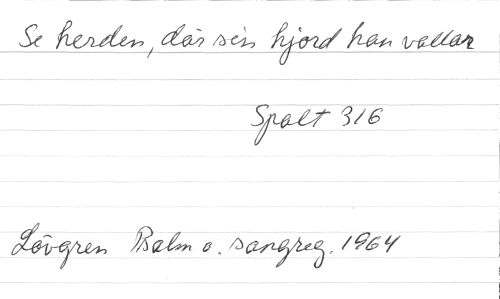 Se herden, där sin hjord han vallar
Spalt 316
Lövgren Psalm o. sångreg. 1964